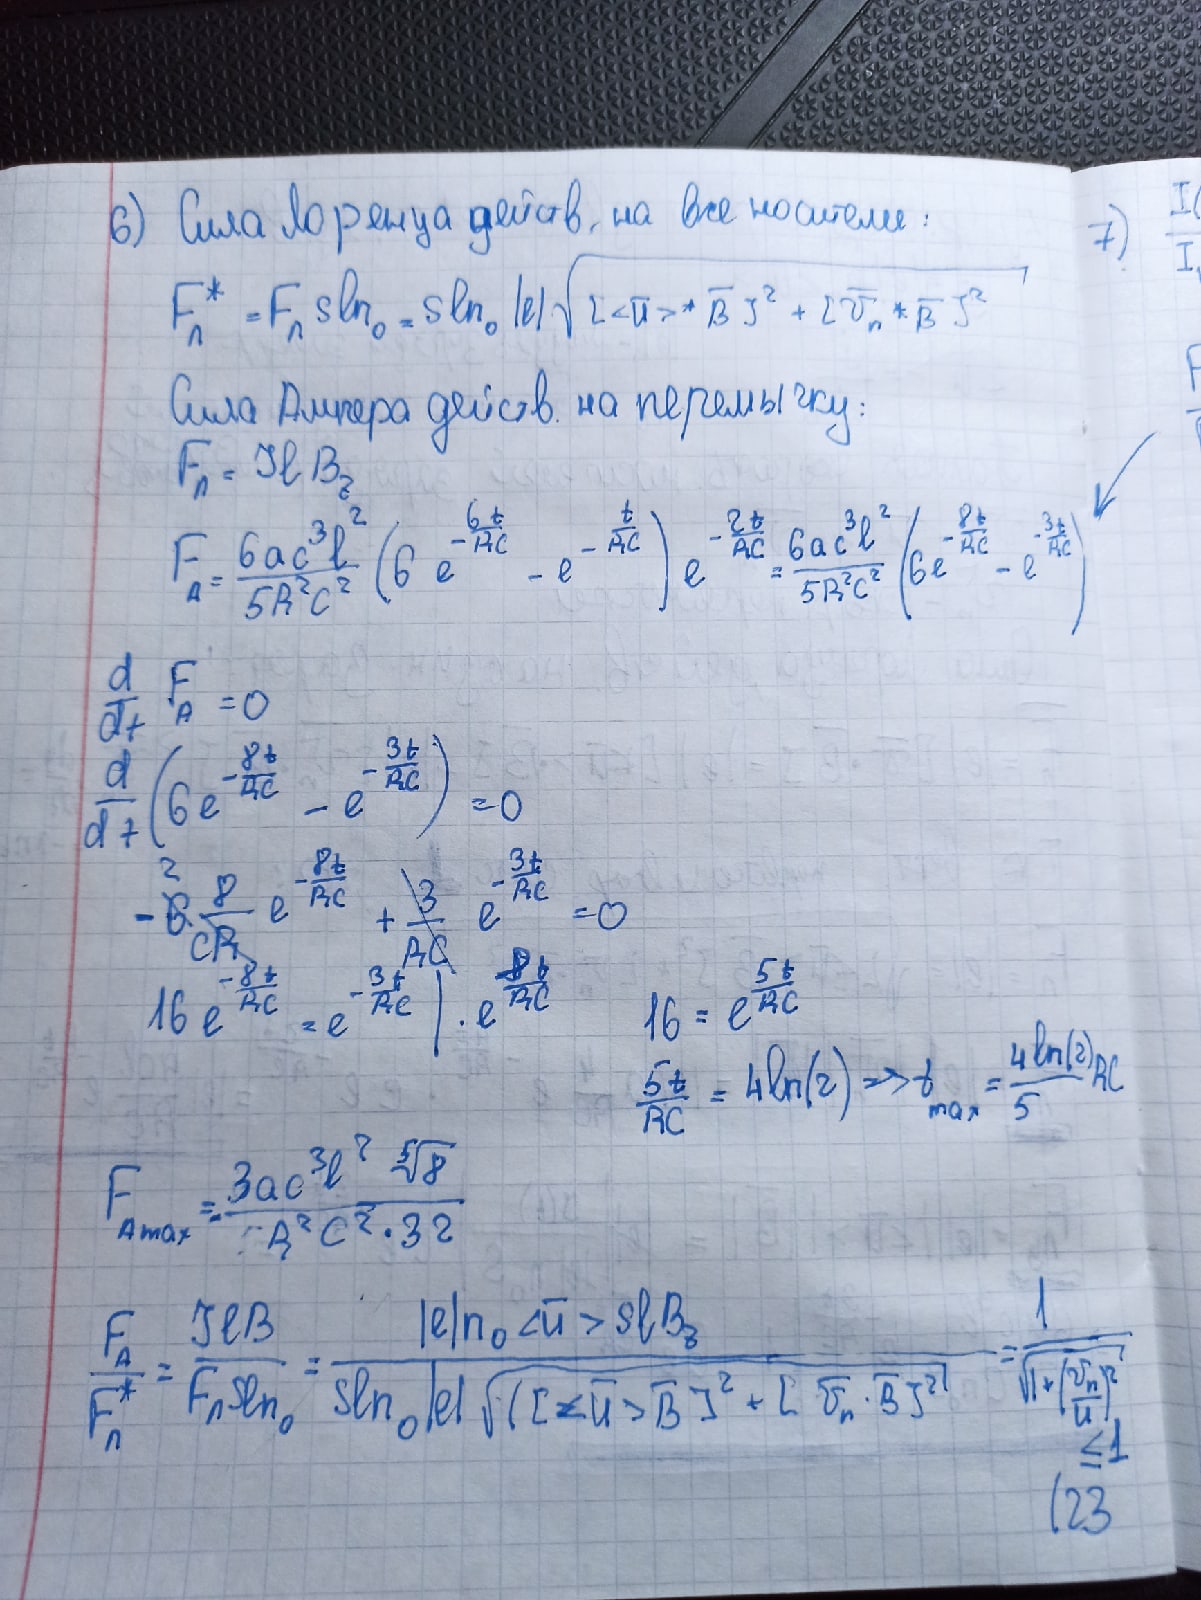 6) Сила Лоренца действ. на все носители:
F_л^* = F_л sln_0 = sln_0 |e| √([<ū> * B̄]^2 + [v̄_n * B̄]^2)
Сила Ампера действ. на перемычку:
F_л = IlB_z
F_A = 6ac^3l^2 / 5R^2C^2 (6e^{-6t/RC} - e^{-t/RC}) e^{-2t/RC} = 6ac^3l^2 / 5R^2C^2 (6e^{-8t/RC} - e^{-3t/RC})
d/dt F_A = 0
d/dt (6e^{-8t/RC} - e^{-3t/RC}) = 0
2
-6·8/CR e^{-8t/RC} + 3/RC e^{-3t/RC} = 0
16e^{-8t/RC} = e^{-3t/RC} | · e^{8t/RC} 16 = e^{5t/RC}
5t/RC = 4ln(2) => t_max = 4ln(2)/5 RC
F_Amax = 3ac^3l^2 ⁵√8 / R^2C^2·32
F_A/F_л^* = IlB / F_л sln_0 = |e|n_0<ū>slB_z / sln_0|e|√(([<ū>B̄]^2 + [v̄_n·B̄]^2) = 1/√(1+(v_n/u)^2)
≤1
(23
7) I(
I
F